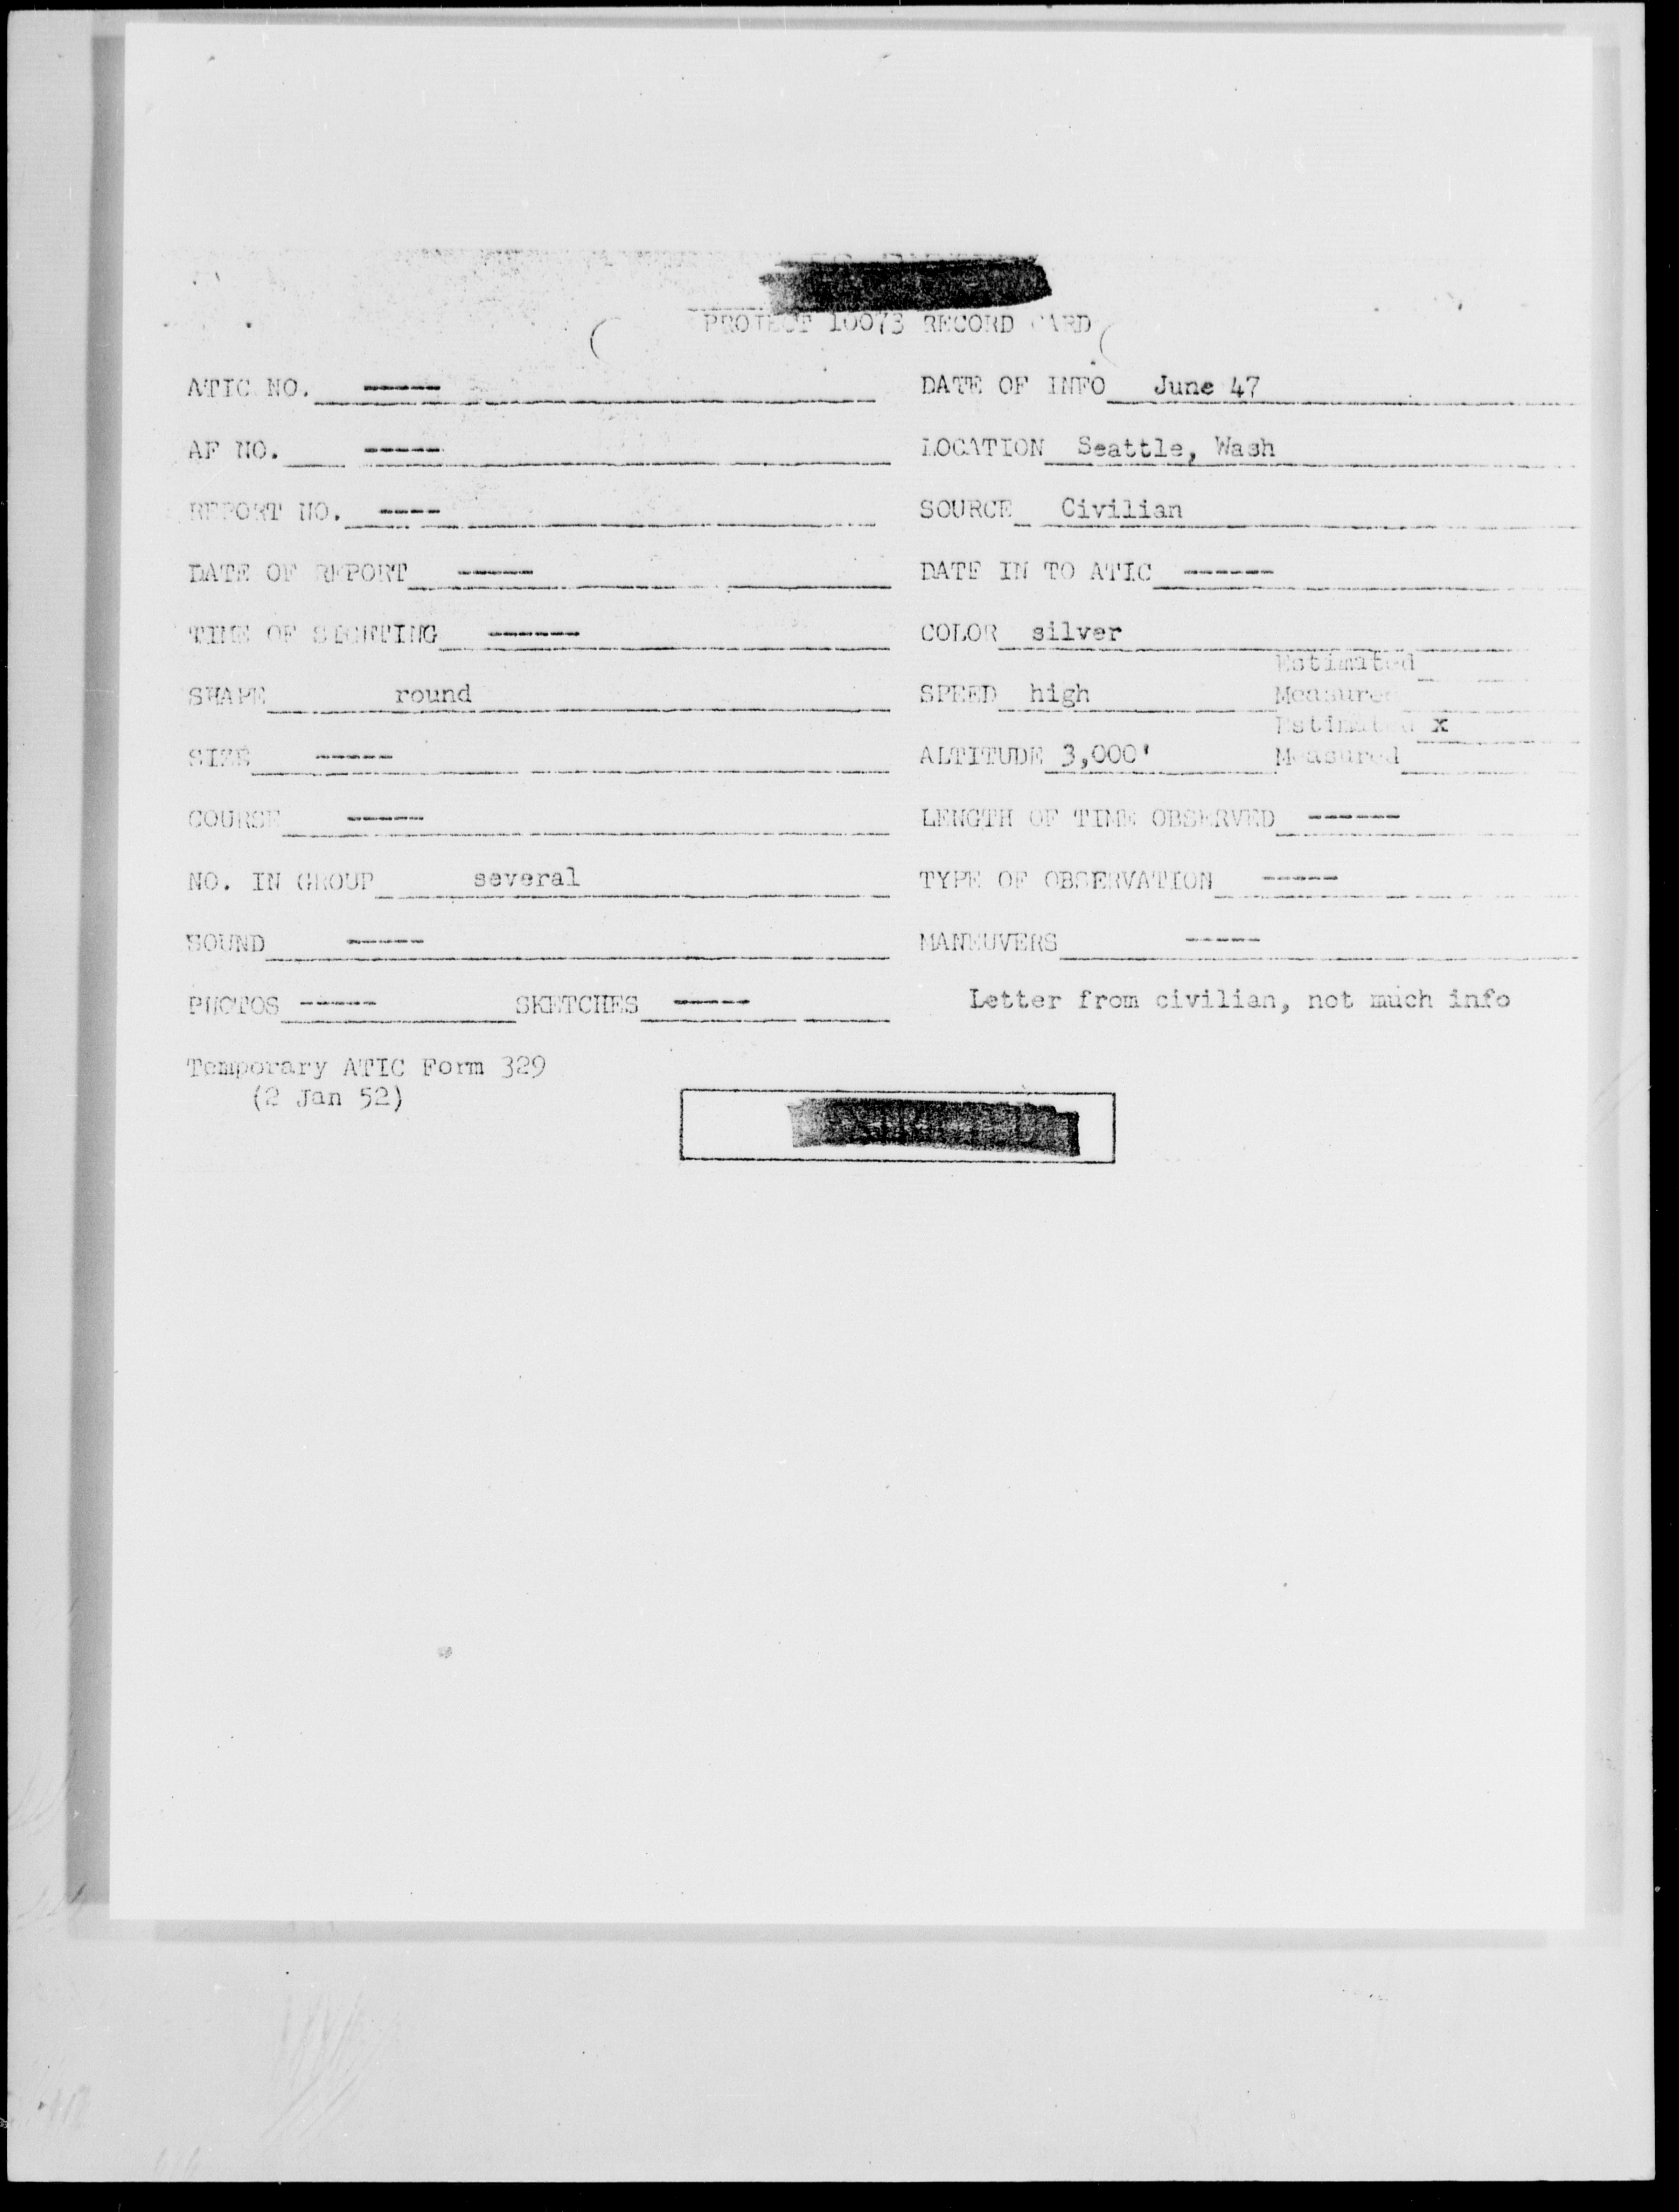 PROJECT 10073 RECORD CARD
ATIC NO. ----- DATE OF INFO June 47
AF NO. ----- LOCATION Seattle, Wash
REPORT NO. ---- SOURCE Civilian
DATE OF REPORT ----- DATE IN TO ATIC ------
TIME OF SIGHTING ------ COLOR silver
Estimated
SHAPE round SPEED high Measured
Estimated x
SIZE ----- ALTITUDE 3,000' Measured
COURSE ----- LENGTH OF TIME OBSERVED ------
NO. IN GROUP several TYPE OF OBSERVATION -----
SOUND ----- MANEUVERS -----
PHOTOS ----- SKETCHES ----- Letter from civilian, not much info
Temporary ATIC Form 329
(2 Jan 52)